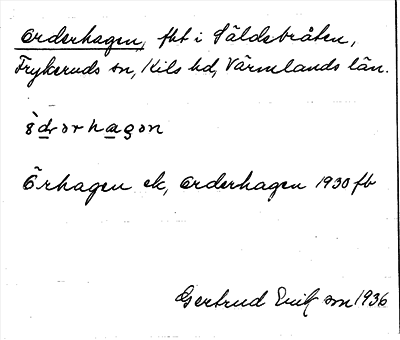 Orderhagen, fht i Såldebråten,
Frykeruds sn, Kils hd, Värmlands län.
ȯ̀drərhagən
Örhagen ek, Orderhagen 1930 fb
Gertrud 1936